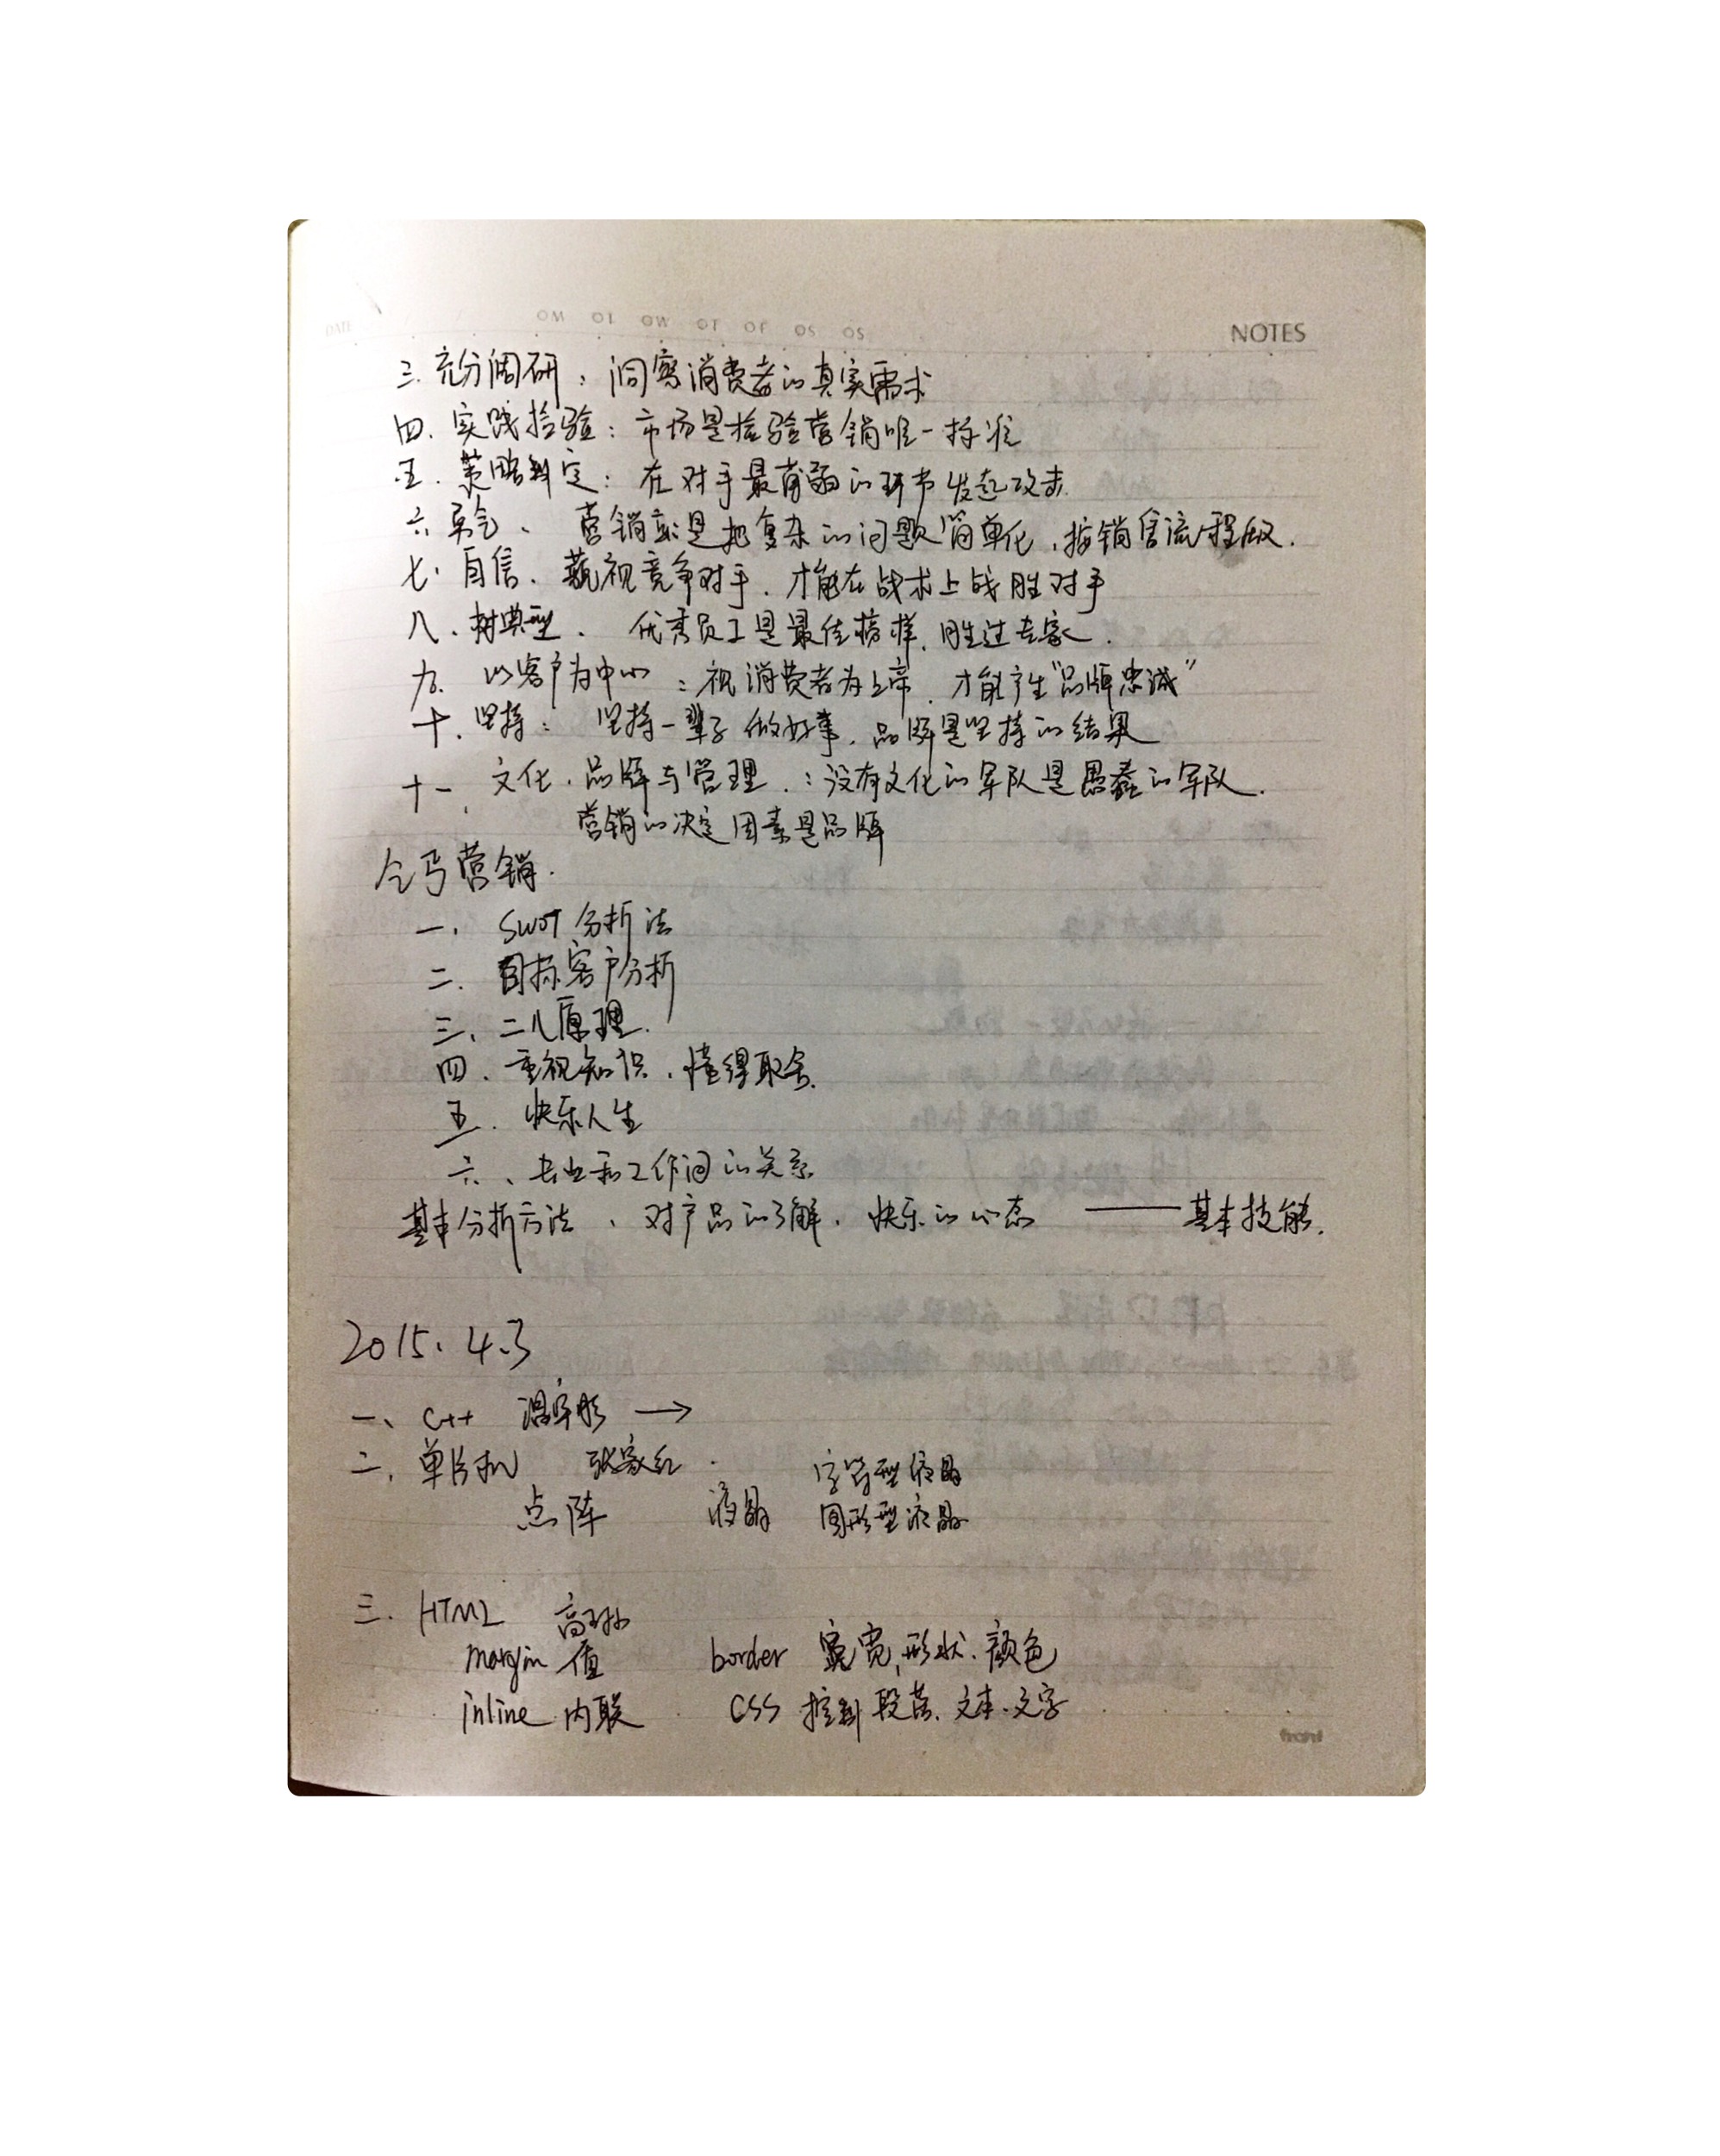 NOTES
三.充分调研:洞察消费者的真实需求
四.实践检验:市场是检验营销唯一标准
五.策略制定:在对手最薄弱的环节发起攻击.
六.勇气、营销就是把复杂的问题简单化,按销售流程做.
七.自信、藐视竞争对手.才能在战术上战胜对手
八.树典型、优秀员工是最佳榜样,胜过专家.
九.以客户为中心:视消费者为上帝.才能产生“品牌忠诚”
十.坚持:坚持一辈子做好事.品牌是坚持的结果
十一.文化.品牌与管理.:没有文化的军队是愚蠢的军队.
营销的决定因素是品牌
营销.
一.SWOT分析法
二.目标客户分析
三.二八原理.
四.重视知识、懂得取舍.
五.快乐人生
六、专业和工作间的关系
基本分析方法、对产品的了解.快乐的心态——基本技能.
2015.4.3
一、C++ →
二.单片机 字符型液晶
点阵 液晶 图形型液晶
三.HTML
margin 值 border 宽,形状.颜色
inline 内联 CSS 控制段落.文本.文字